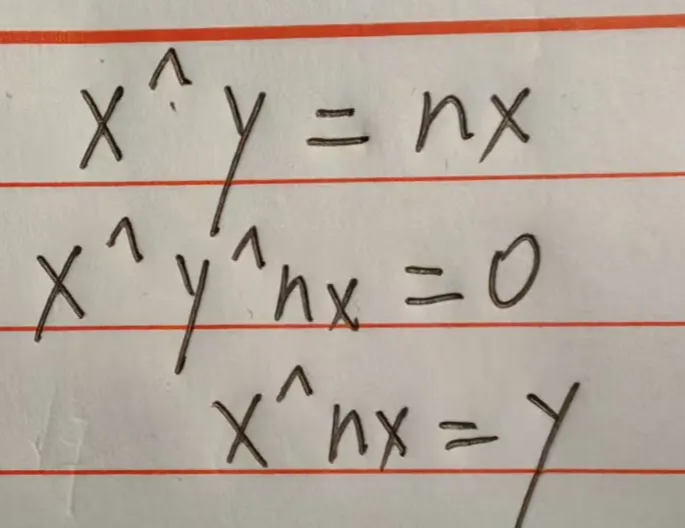 x^y = nx
x^y^nx = 0
x^nx = y